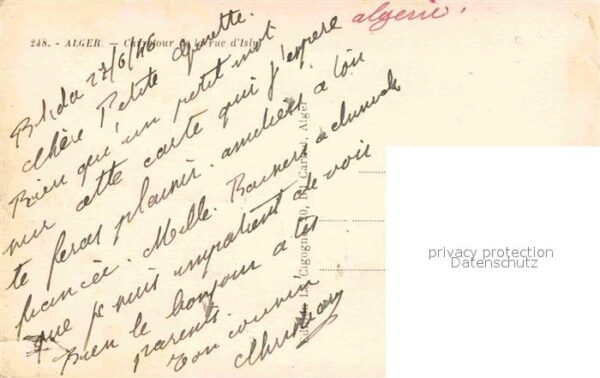 248. - ALGER. - Carrefour de la rue d'Isly
algérie.
Blida 27/6/46
Chère Petite Ginette.
Bien qu'un petit mot
sur cette carte qui j'espère
te feras plaisir. amitiers a ton
fiancée. Mille Baisers a
que je suis impatient de voir
Bien le bonjour a tes
parents.
Ton cousin
Christian
Edition La Cigogne, Alger
privacy protection
Datenschutz